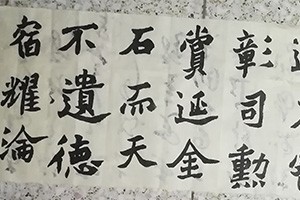 彰司勳
賞延金
石而天
不遺德
宿耀淪